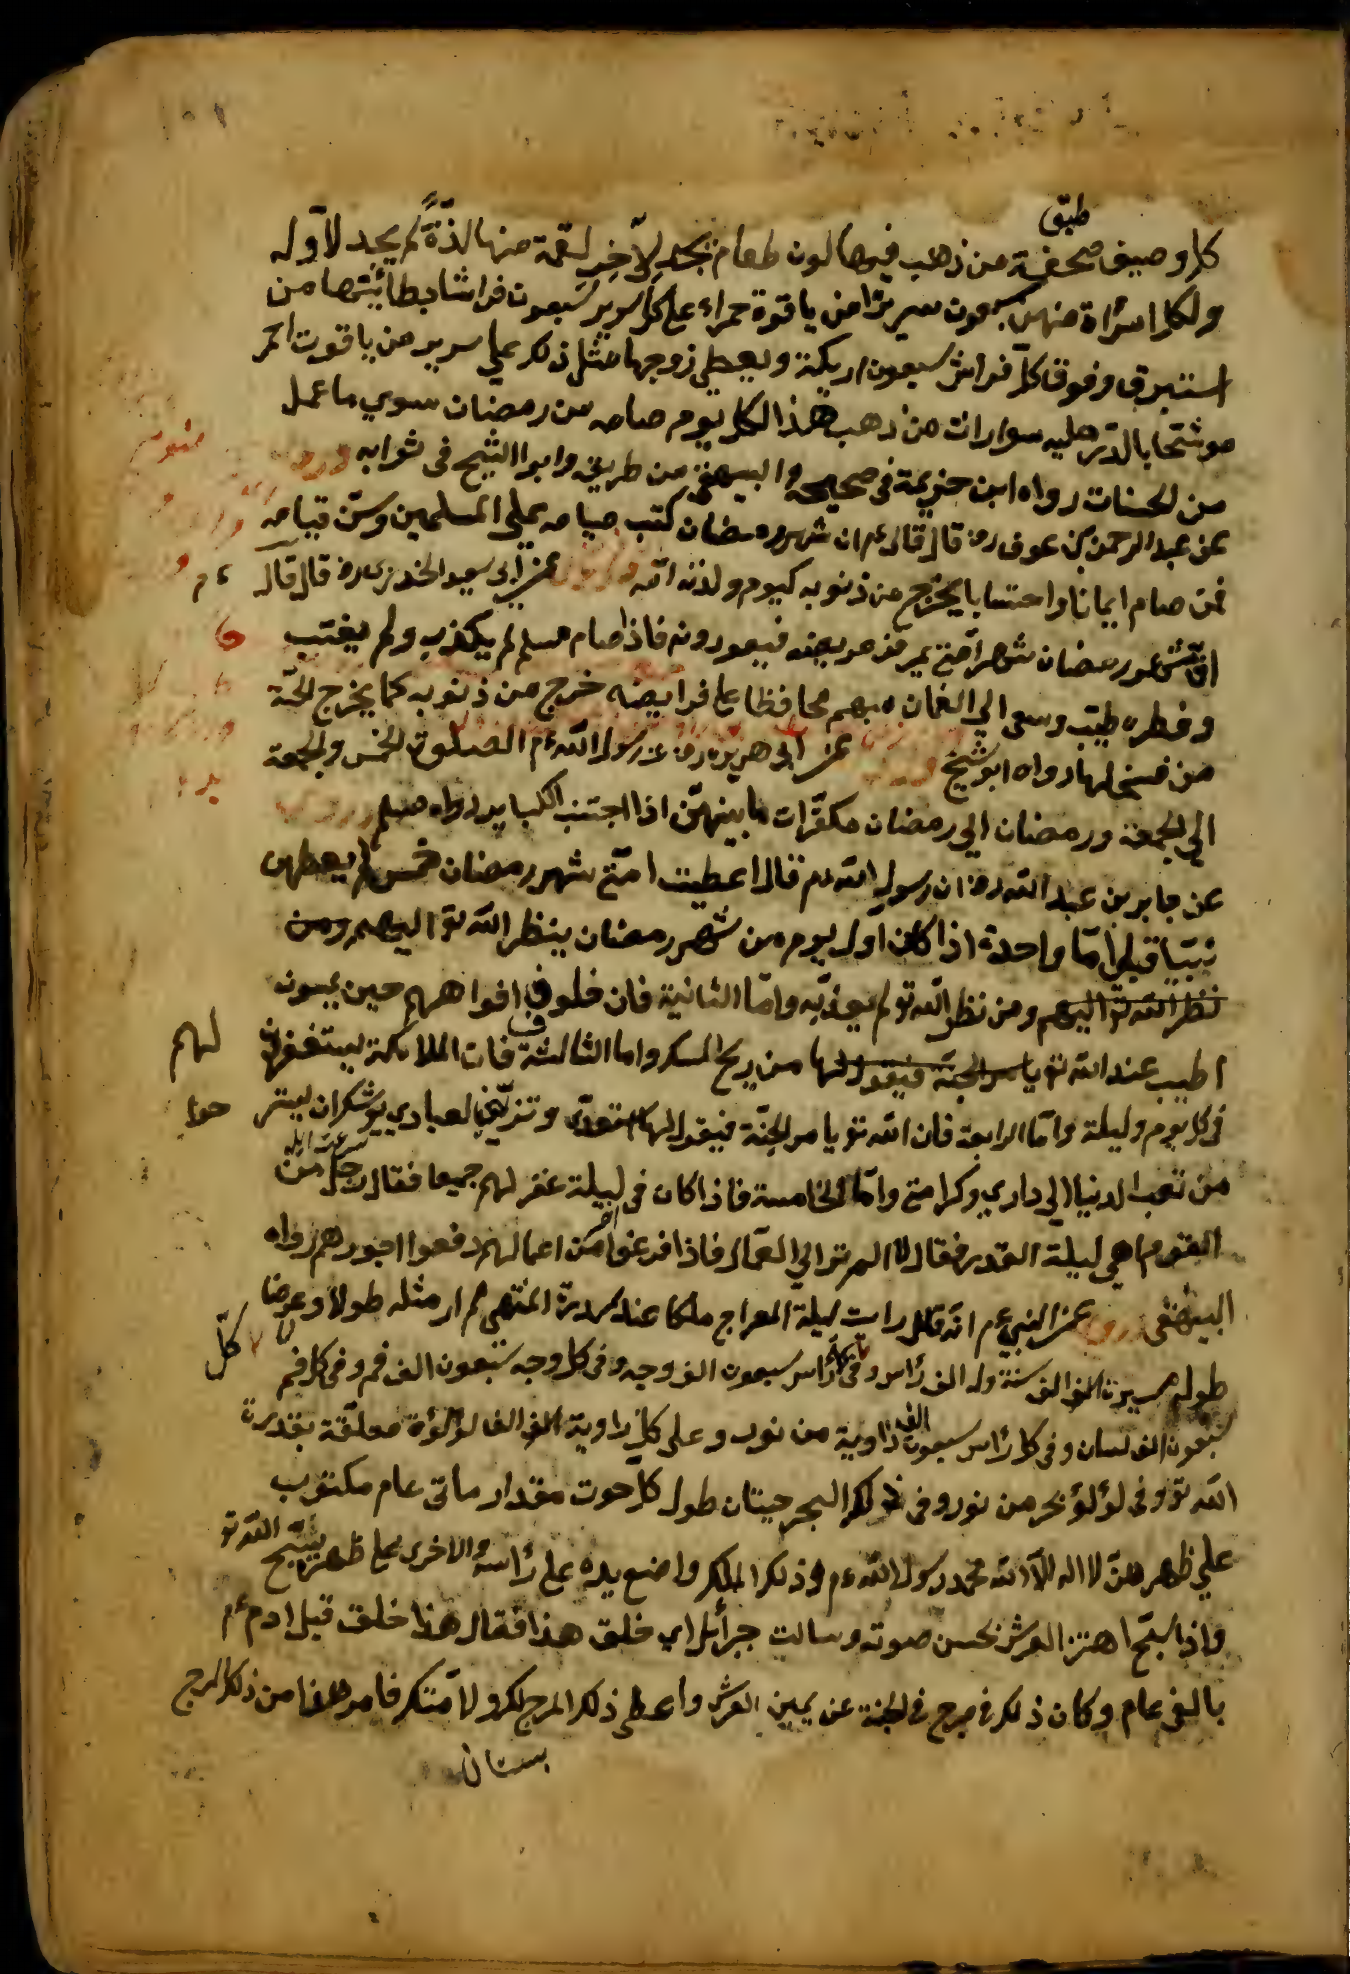 طبق
كل وصيف صحفة من ذهب فيها لون طعام يجد لآخر لقمة منها لذّةً لم يجد لاوّله
ولكل امرأة منهن سبعون سريرًا من ياقوتة حمراء على كل سرير سبعون فراشا بطائنها من
استبرق وفوق كلّ فراش سبعون اريكة ويعطي زوجها مثل ذلك علي سرير من ياقوت احمر
موشّحا بالدّر عليه سواران من ذهب هذا لكل يوم صامه من رمضان سوي ما عمل
من الحسنات رواه ابن خزيمة في صحيحه والبيهقي من طريقه وابو الشيخ في ثوابه وروى
عن عبد الرحمن بن عوف رض قال قال عم ان شهر رمضان كتب صيامه علي المسلمين وسنّ قيامه
فمن صام ايمانا واحتسابا يخرج من ذنوبه كيوم ولدته امّه عن ابي سعيد الخدري رض قال قال عم
انّ شهر رمضان شهر امّتي يمرض مريضهم فيعودونه فاذا صام مسلم لم يكذب ولم يغتب
وفطره طيّب وسعى الي محافظا على فرايضه خرج من ذنوبه كما يخرج الحيّة
من سلخها رواه ابو شيخ وروى عن ابي هريرة رض عن رسول الله عم الصلوة الخمس والجمعة
الي الجمعة ورمضان الي رمضان مكفّرات ما بينهنّ اذا اجتنب الكباير رواه مسلم وروى
عن جابر بن عبد الله رض ان رسول الله عم قال اعطيت امّتي شهر رمضان خمس لم يعطهن
نبيّا قبلي امّا واحدة اذا كان اول يوم من شهر رمضان ينظر الله تو اليهم ومن
نظر الله تو اليهم ومن نظر الله تو لم يعذّبه وامّا الثانية فان خلوف افواههم حين يمسون
اطيب عند الله تو يأمر الجنة فيقول لها من ريح المسك واما الثالثة فان الملائكة يستغفرون لهم
في كل يوم وليلة وامّا الرابعة فان الله تو يامر الجنّة فيقول لها استعدّي وتزيّني لعبادي يوشك ان يستر حوا
من تعب الدنيا الي داري وكرامتي وامّا الخامسة فاذا كان في اخر ليلة غفر لهم جميعا فقال رجل من
القوم اهي ليلة القدر فقال لا الم تر الي العمّال فاذا فرغوا من اعمالهم دفعوا اجورهم رواه
البيهقي وروى عن النبي عم انّه قال رايت ليلة المعراج ملكا عند سدرة المنتهى لم ار مثله طولا وعرضا
طوله مسيرة الف الف سنة وله الف راس وفي كل رأس سبعون الف وجه وفي كل وجه سبعون الف فم وفي كل فم
سبعون الف لسان وفي كل رأس سبعون الف ذاوية من نور وعلى كل ذاوية الف الف لؤلؤة معلّقة بقدرة
الله تو وفي لؤلؤ بحر من نور وفي ذلك البحر حيتان طول كل حوت مقدار مأتي عام مكتوب
علي ظهرهنّ لا اله الّا الله محمد رسول الله عم وذلك الملك واضع يده على رأسه والاخرى على ظهره يسبّح الله تو
واذا سبّح اهتز العرش لحسن صوته وسالت جبرائل اي خلق هذا فقال هذا خلق قبل ادم عم
بالفي عام وكان ذلك في مرج في الجنة عن يمين العرش واعطى ذلك المرج لك ولامّتك فامر هنا من ذلك المرج
بستان